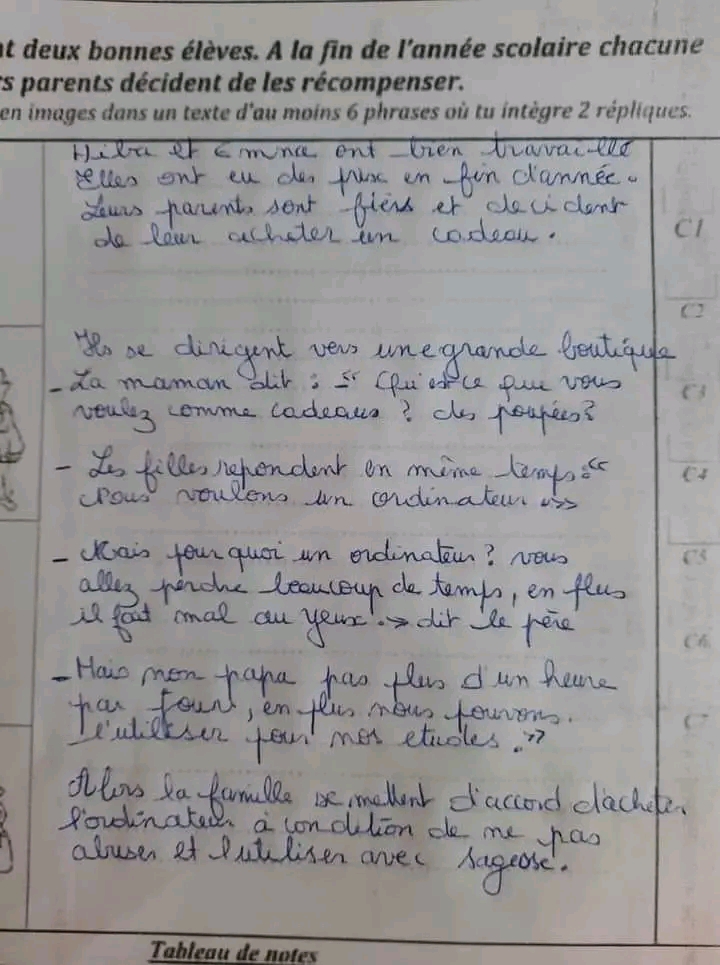 t deux bonnes élèves. A la fin de l'année scolaire chacune
s parents décident de les récompenser.
en images dans un texte d'au moins 6 phrases où tu intègre 2 répliques.
Hiba et Emna ont bien travaillé
Elles ont eu des prix en fin d'année.
Leurs parents sont fiers et decident
de leur acheter un cadeau.
C1
C2
Ils se dirigent vers une grande boutique
- La maman dit : " Qu'est ce que vous
voulez comme cadeaus ? des poupées ?
C3
- Les filles repondent en même temps : "
Nous voulons un ordinateur . »
C4
- Mais pour quoi un ordinateur ? vous
allez perdre beaucoup de temps, en plus
il fait mal au yeux . » dit le père
C5
C6
- Mais non papa pas plus d'un heure
par jour, en plus nous pouvons
l'utiliser pour nos etudes . »
C7
Alors la famille se mettent d'accord d'acheter
l'ordinateur à condition de ne pas
abuser et l'utiliser avec sagesse.
Tableau de notes